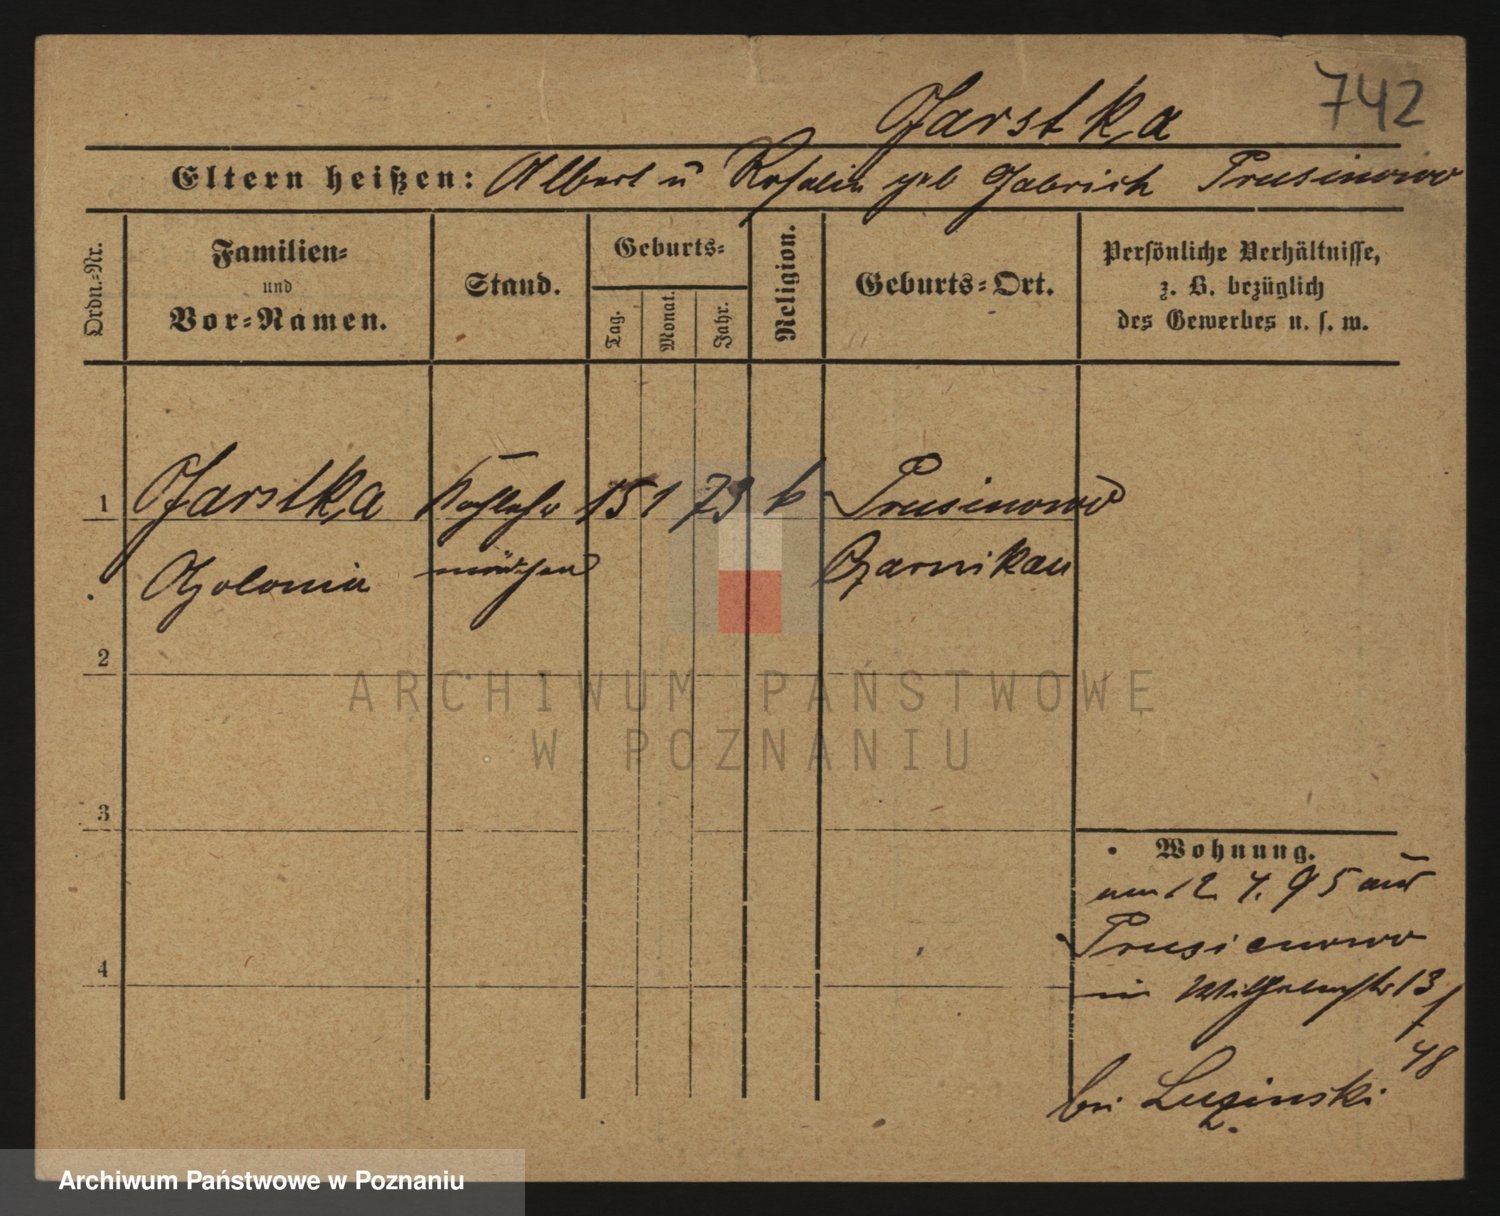 742
Jarstka
Eltern heißen: Albert u Rosalie geb Gabrich Prusinowo
Ordn.-Nr.
Familien-
und
Vor-Namen.
Stand.
Geburts-
Tag.
Monat.
Jahr.
Religion.
Geburts-Ort.
Persönliche Verhältnisse,
z. B. bezüglich
des Gewerbes u. s. w.
1
Jarstka 15 1 73 k Prusinowo
mädchen Czarnikau
2
ARCHIWUM PAŃSTWOWE
W POZNANIU
3
Wohnung.
am 12 4. 95 aus
Prusienowo
in Wilhelmstr 13
48
4
bei Luzinski
Archiwum Państwowe w Poznaniu